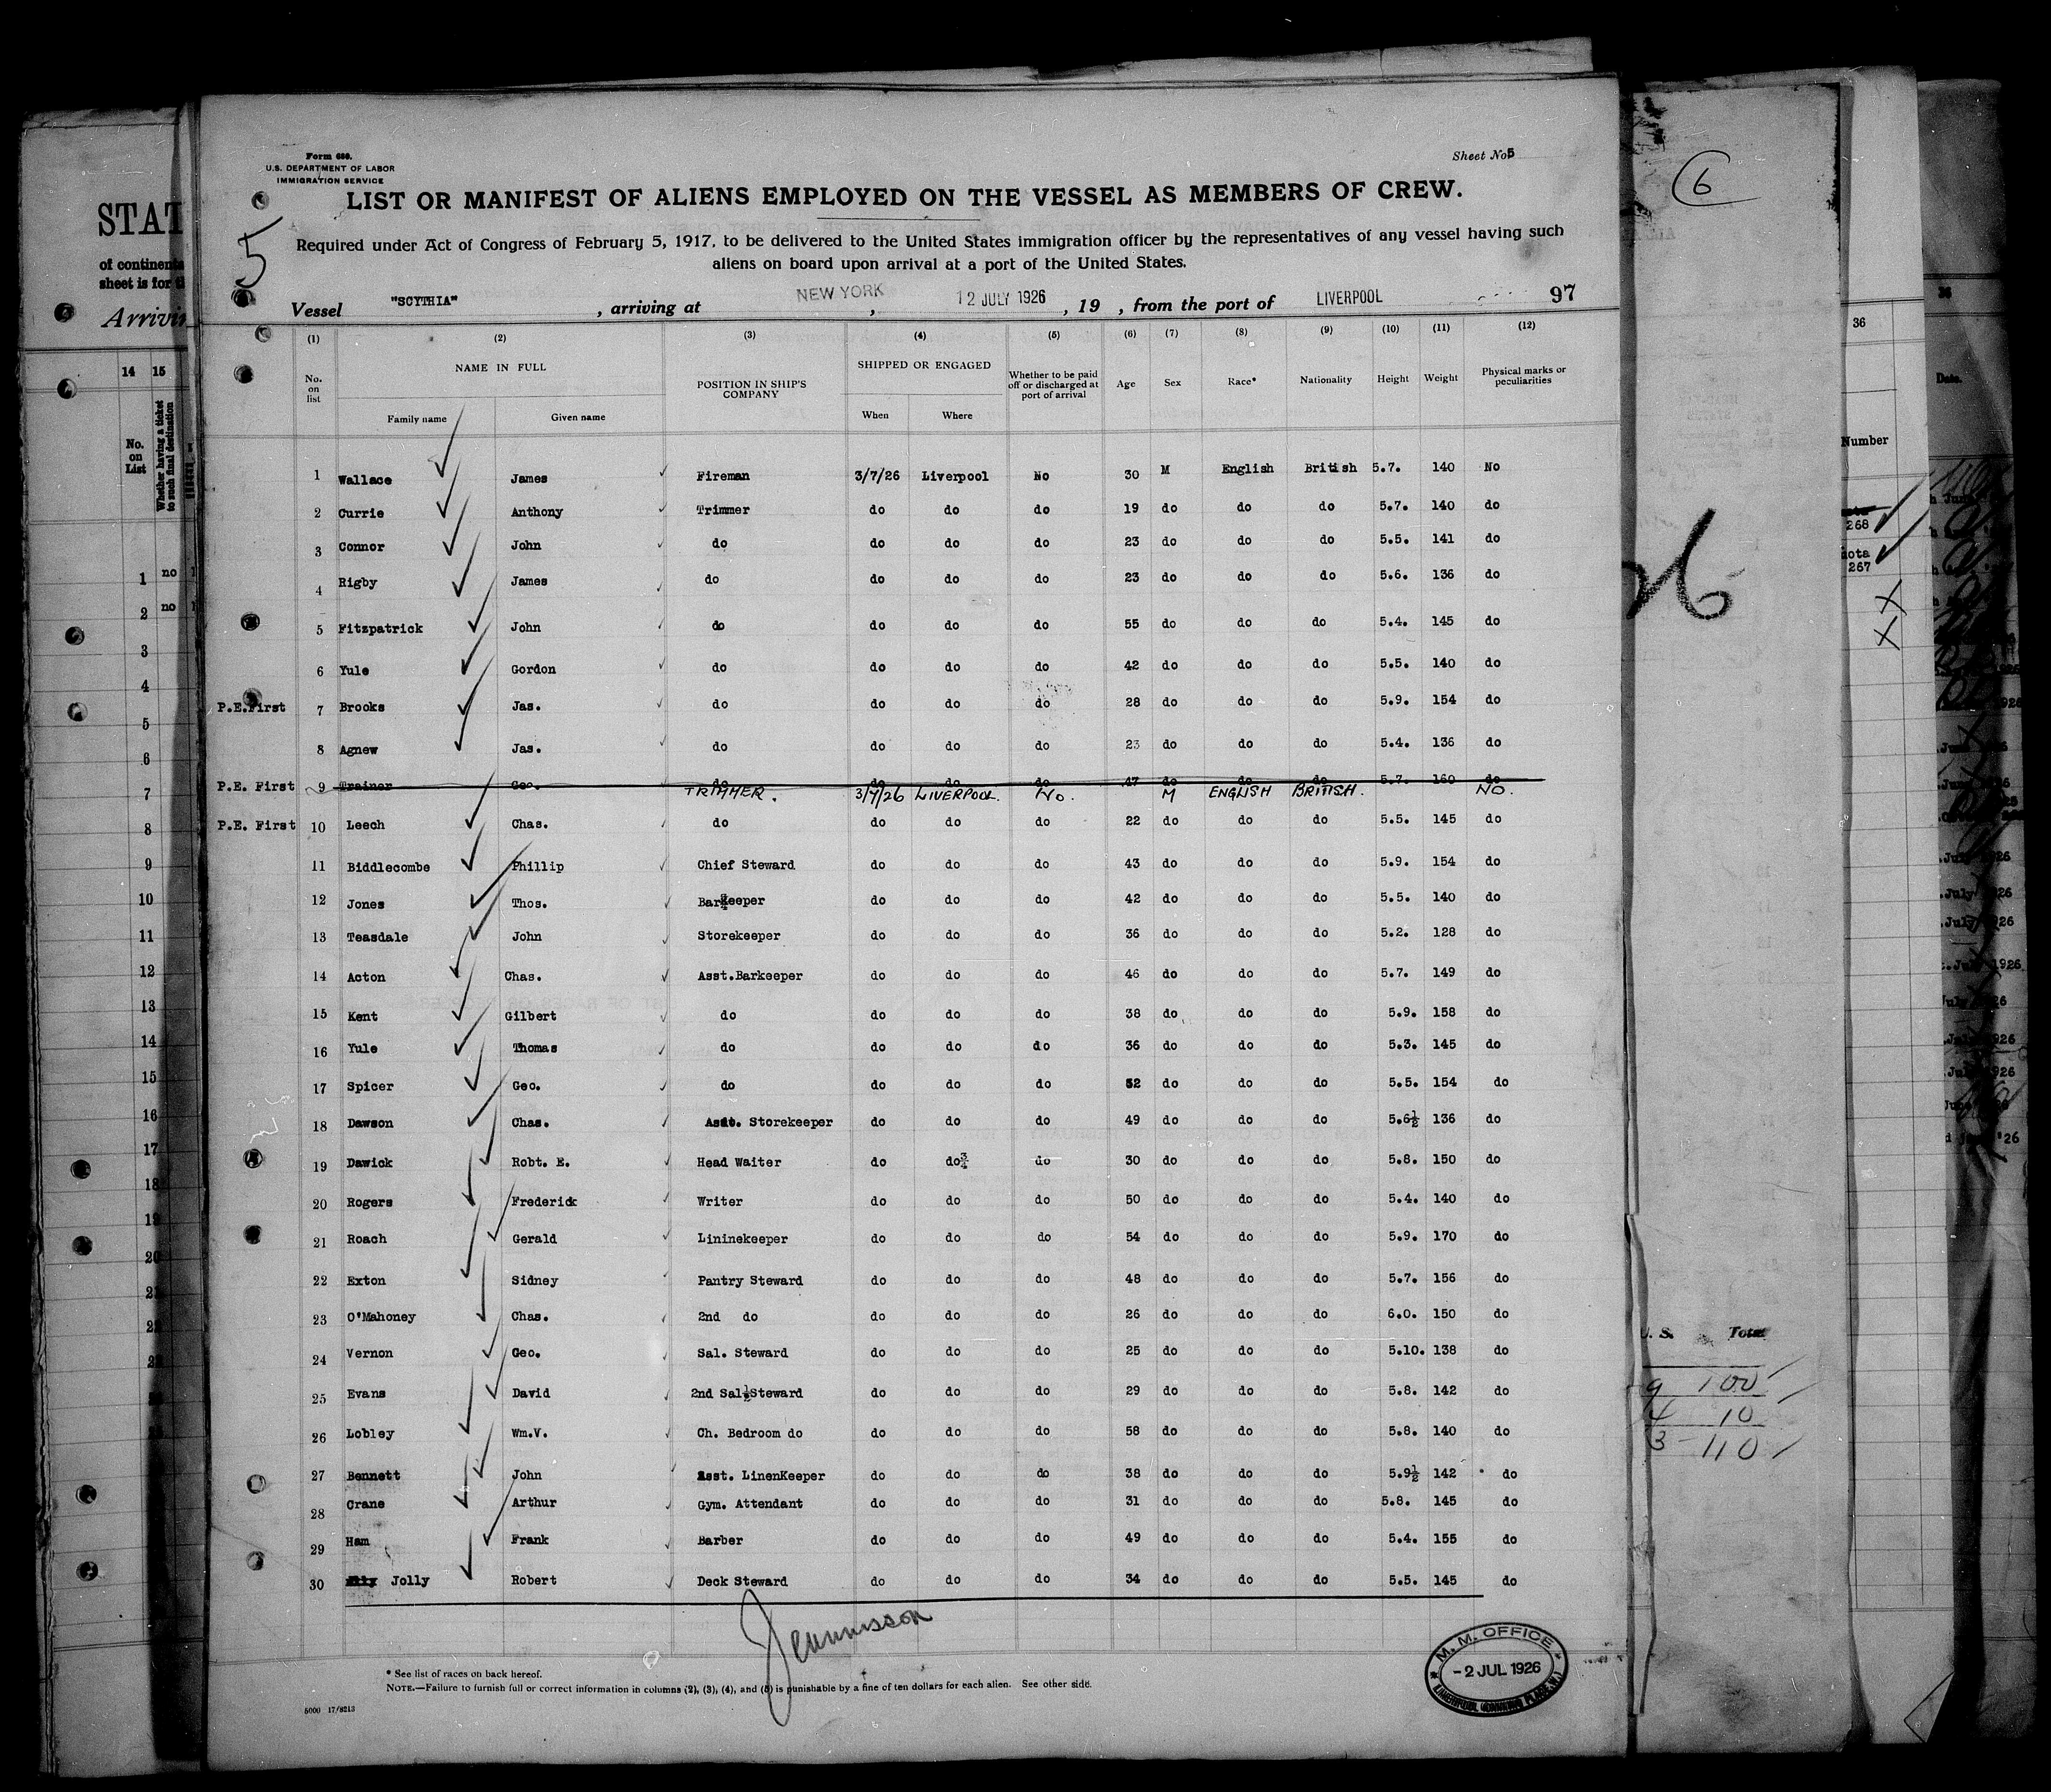 Form 680.
U.S. DEPARTMENT OF LABOR
IMMIGRATION SERVICE
Sheet No 5
LIST OR MANIFEST OF ALIENS EMPLOYED ON THE VESSEL AS MEMBERS OF CREW.
5
Required under Act of Congress of February 5, 1917, to be delivered to the United States immigration officer by the representatives of any vessel having such
aliens on board upon arrival at a port of the United States.
Vessel "SCYTHIA", arriving at NEW YORK, 12 JULY 1926, 19 , from the port of LIVERPOOL 97
(1) (2) (3) (4) (5) (6) (7) (8) (9) (10) (11) (12)
No. on list NAME IN FULL POSITION IN SHIP'S COMPANY SHIPPED OR ENGAGED Whether to be paid off or discharged at port of arrival Age Sex Race* Nationality Height Weight Physical marks or peculiarities
Family name Given name When Where
1 Wallace James Fireman 3/7/26 Liverpool No 30 M English British 5.7. 140 No
2 Currie Anthony Trimmer do do do 19 do do do 5.7. 140 do
3 Connor John do do do do 23 do do do 5.5. 141 do
4 Rigby James do do do do 23 do do do 5.6. 136 do
5 Fitzpatrick John do do do do 55 do do do 5.4. 145 do
6 Yule Gordon do do do do 42 do do do 5.5. 140 do
P.E.First 7 Brooks Jas. do do do do 28 do do do 5.9. 154 do
8 Agnew Jas. do do do do 23 do do do 5.4. 136 do
P.E. First 9 Trainer Geo. do do do do 47 do do do 5.7. 160 do
TRIMMER. 3/7/26 LIVERPOOL. No. M ENGLISH BRITISH. NO.
P.E. First 10 Leech Chas. do do do do 22 do do do 5.5. 145 do
11 Biddlecombe Phillip Chief Steward do do do 43 do do do 5.9. 154 do
12 Jones Thos. Barkeeper do do do 42 do do do 5.5. 140 do
13 Teasdale John Storekeeper do do do 36 do do do 5.2. 128 do
14 Acton Chas. Asst.Barkeeper do do do 46 do do do 5.7. 149 do
15 Kent Gilbert do do do do 38 do do do 5.9. 158 do
16 Yule Thomas do do do do 36 do do do 5.3. 145 do
17 Spicer Geo. do do do do 52 do do do 5.5. 154 do
18 Dawson Chas. Asst. Storekeeper do do do 49 do do do 5.6½ 136 do
19 Dawick Robt. E. Head Waiter do do¾ do 30 do do do 5.8. 150 do
20 Rogers Frederick Writer do do do 50 do do do 5.4. 140 do
21 Roach Gerald Lininekeeper do do do 54 do do do 5.9. 170 do
22 Exton Sidney Pantry Steward do do do 48 do do do 5.7. 156 do
23 O'Mahoney Chas. 2nd do do do do 26 do do do 6.0. 150 do
24 Vernon Geo. Sal. Steward do do do 25 do do do 5.10. 138 do
25 Evans David 2nd Sal½Steward do do do 29 do do do 5.8. 142 do
26 Lobley Wm.V. Ch. Bedroom do do do do 58 do do do 5.8. 140 do
27 Bennett John Asst. LinenKeeper do do do 38 do do do 5.9½ 142 do
28 Crane Arthur Gym. Attendant do do do 31 do do do 5.8. 145 do
29 Ham Frank Barber do do do 49 do do do 5.4. 155 do
30 Jolly Robert Deck Steward do do do 34 do do do 5.5. 145 do
Jennisson
* See list of races on back hereof.
NOTE.—Failure to furnish full or correct information in columns (2), (3), (4), and (5) is punishable by a fine of ten dollars for each alien. See other side.
5000 17/8213
M. M. OFFICE
-2 JUL 1926
STAT
of continent
sheet is for
Arrivin
14 15
No. on List
Whether having a ticket to such final destination
1 no
2 no
3
4
5
6
7
8
9
10
11
12
13
14
15
16
17
18
19
20
6
26
U. S. Total
9 100
4 10
3 110
36
Number
268
267
36
Date.